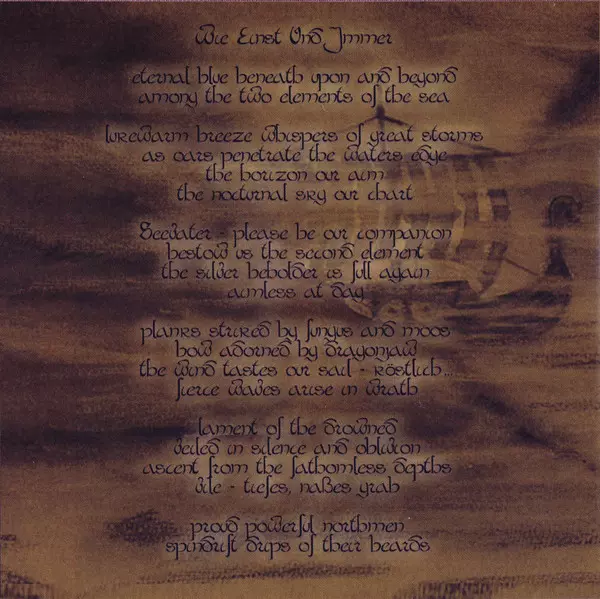 Wie Einst Und Immer
eternal blue beneath upon and beyond
among the two elements of the sea
lukewarm breeze whispers of great storms
as oars penetrate the waters edge
the horizon our aim
the nocturnal sky our chart
Seevater - please be our companion
bestow us the second element
the silver beholder is full again
aimless at day
planks stured by fungus and moos
bow adorned by dragonjaw
the wind tastes our sail - köstlich...
fierce waves arise in wrath
lament of the drowned
veiled in silence and oblivion
ascent from the fathomless depths
vile - tiefes, naßes grab
proud powerful northmen
spindrift drips of their beards